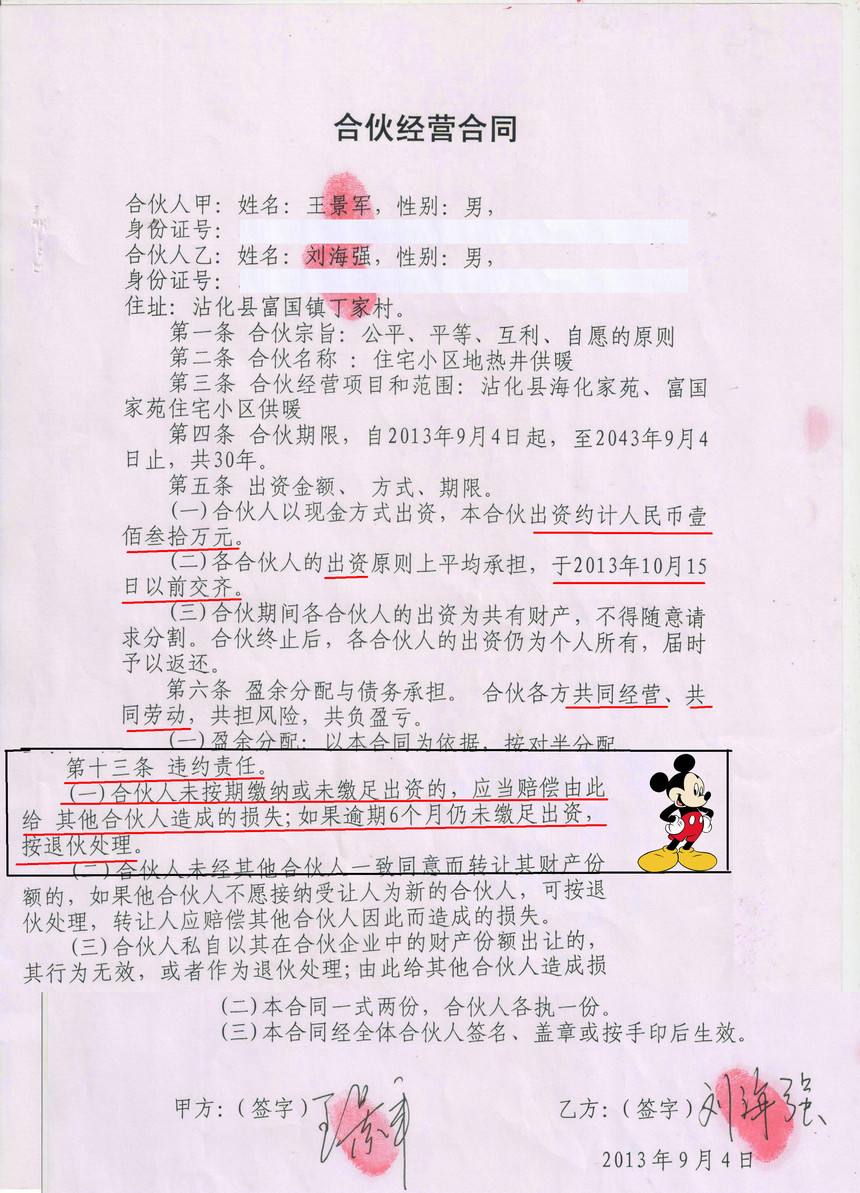 合伙经营合同
合伙人甲：姓名：王景军，性别：男，
身份证号：
合伙人乙：姓名：刘海强，性别：男，
身份证号：
住址：沾化县富国镇丁家村。
第一条 合伙宗旨：公平、平等、互利、自愿的原则
第二条 合伙名称 ：住宅小区地热井供暖
第三条 合伙经营项目和范围：沾化县海化家苑、富国
家苑住宅小区供暖
第四条 合伙期限，自2013年9月4日起，至2043年9月4
日止，共30年。
第五条 出资金额、 方式、期限。
(一)合伙人以现金方式出资，本合伙出资约计人民币壹
佰叁拾万元。
(二)各合伙人的出资原则上平均承担，于2013年10月15
日以前交齐。
(三)合伙期间各合伙人的出资为共有财产，不得随意请
求分割。合伙终止后，各合伙人的出资仍为个人所有，届时
予以返还。
第六条 盈余分配与债务承担。 合伙各方共同经营、共
同劳动，共担风险，共负盈亏。
(一)盈余分配：以本合同为依据，按对半分配
第十三条 违约责任。
(一)合伙人未按期缴纳或未缴足出资的，应当赔偿由此
给 其他合伙人造成的损失;如果逾期6个月仍未缴足出资，
按退伙处理。
(二)合伙人未经其他合伙人一致同意而转让其财产份
额的，如果他合伙人不愿接纳受让人为新的合伙人，可按退
伙处理，转让人应赔偿其他合伙人因此而造成的损失。
(三)合伙人私自以其在合伙企业中的财产份额出让的，
其行为无效，或者作为退伙处理;由此给其他合伙人造成损
(二)本合同一式两份，合伙人各执一份。
(三)本合同经全体合伙人签名、盖章或按手印后生效。
甲方：(签字)王景军 乙方：(签字)刘海强
2013年9月4日